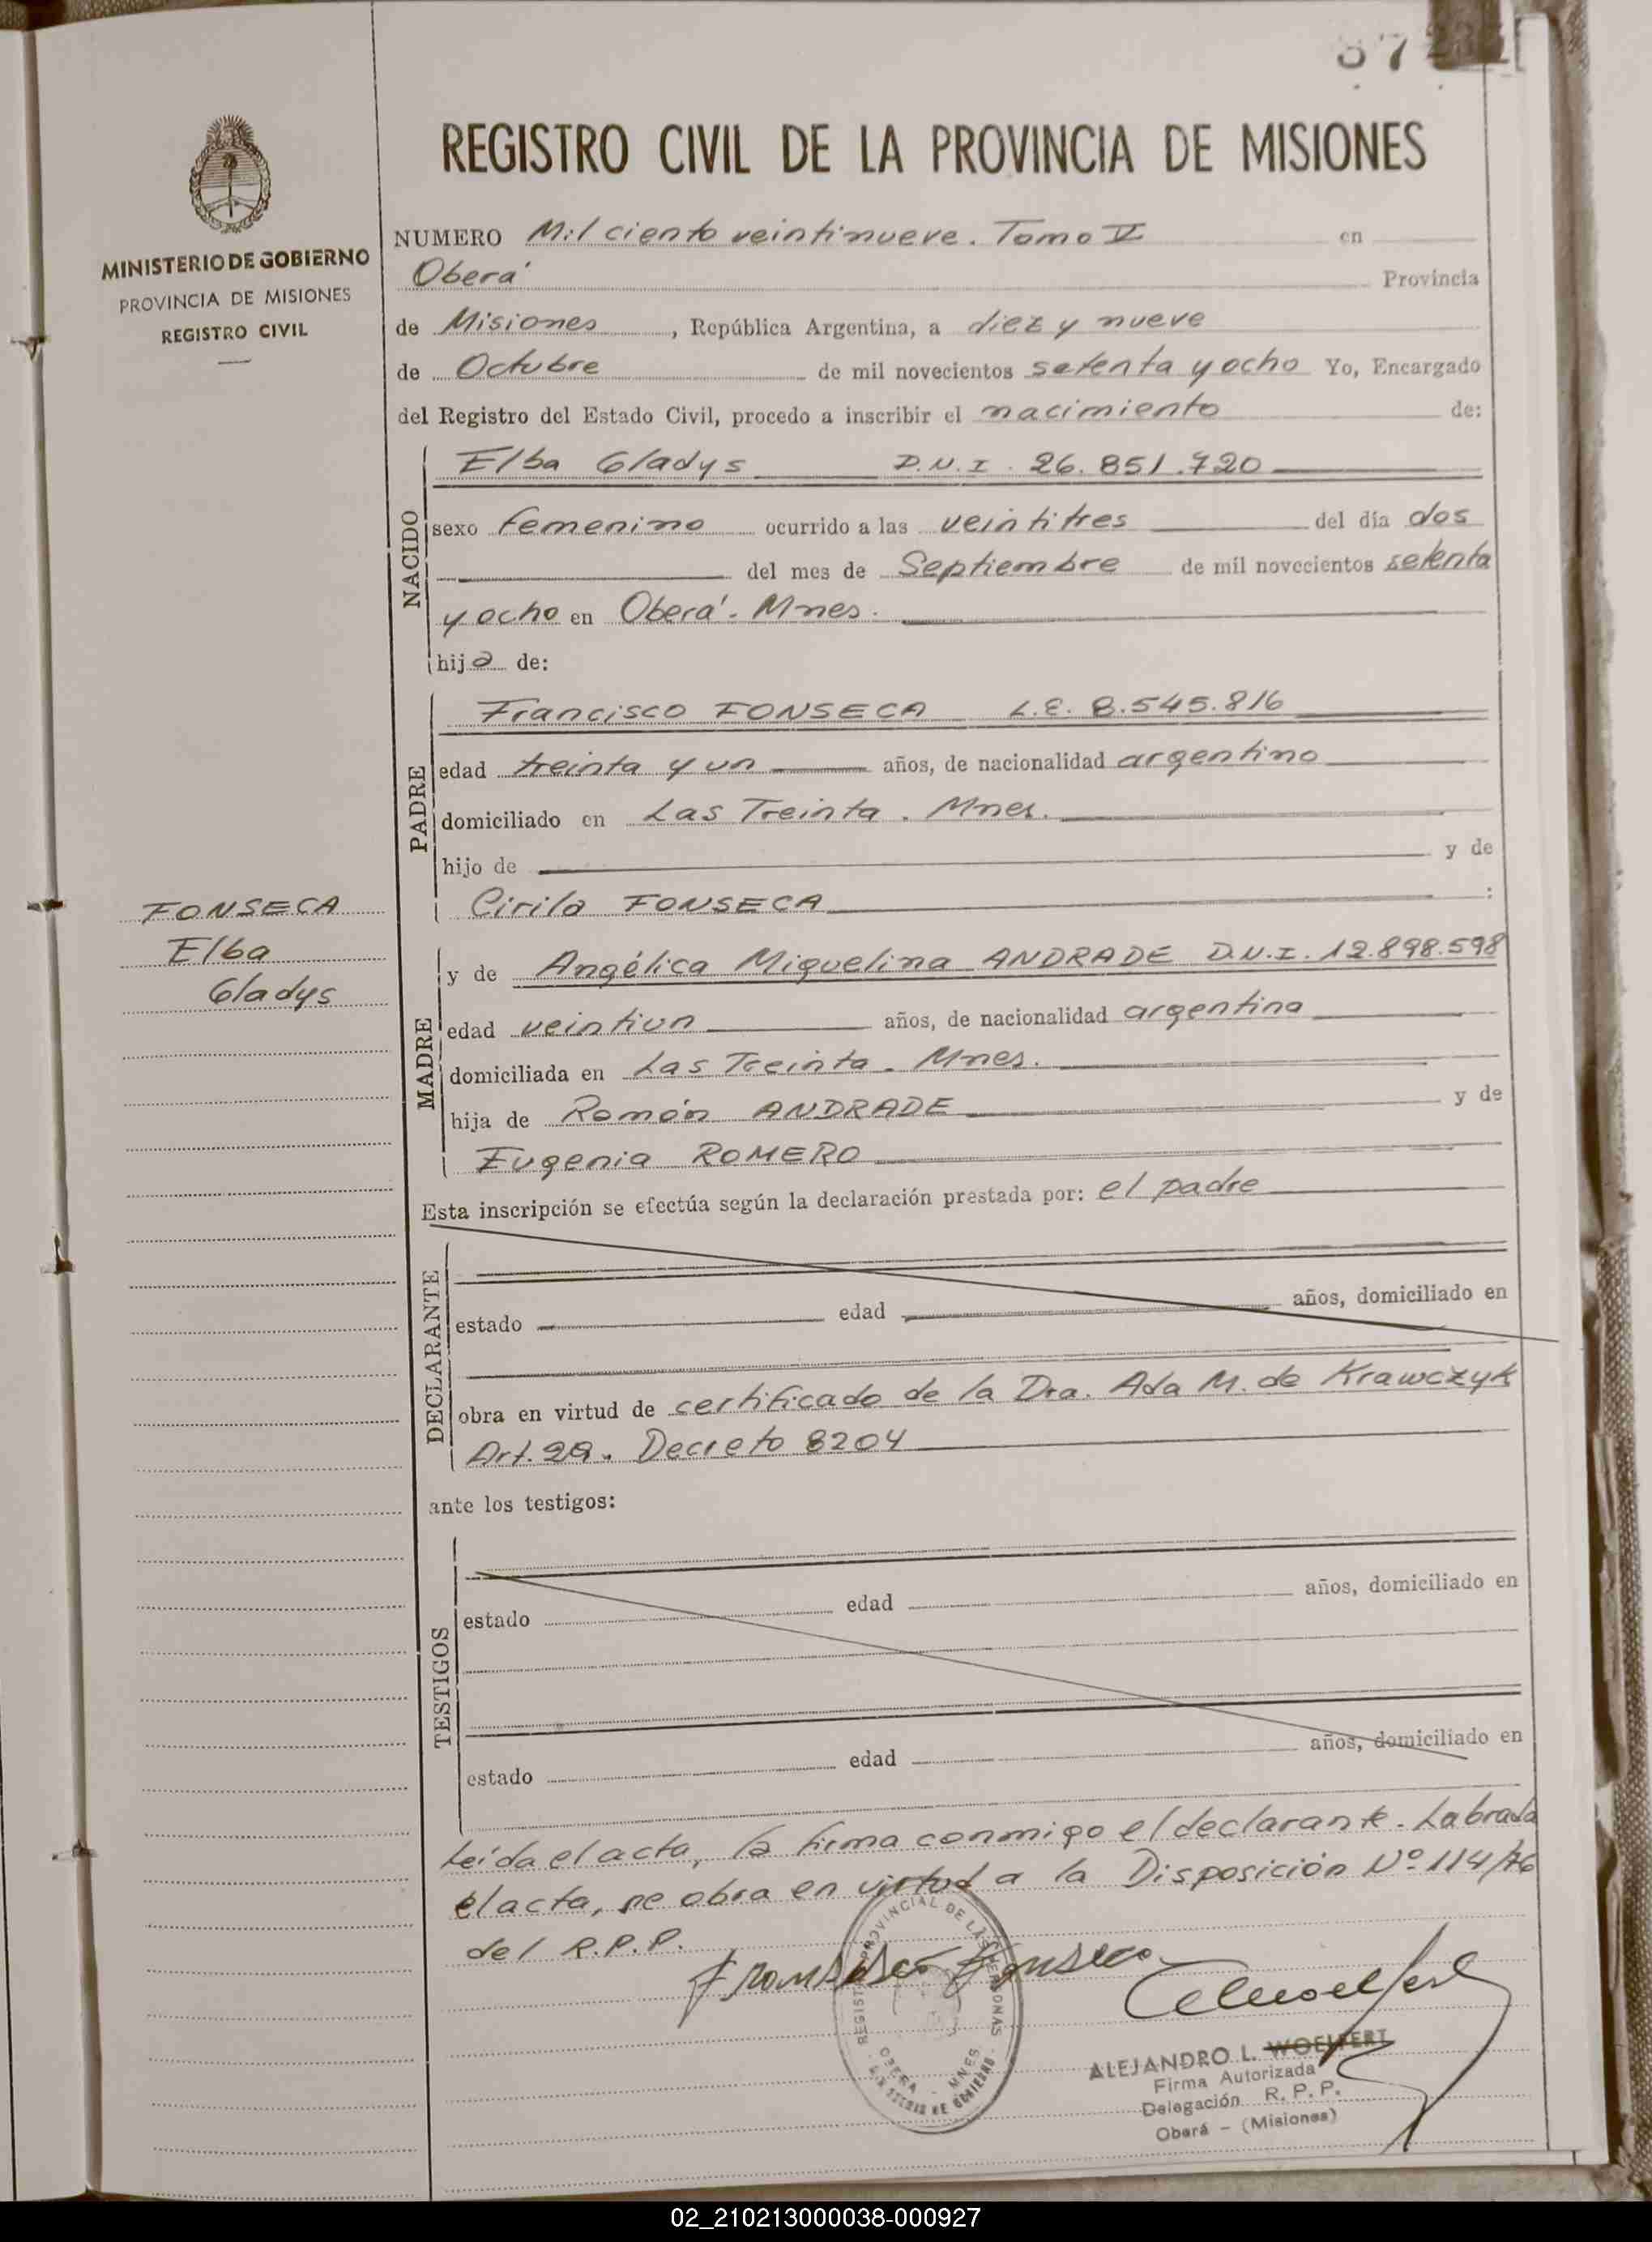 37
REGISTRO CIVIL DE LA PROVINCIA DE MISIONES
MINISTERIO DE GOBIERNO
PROVINCIA DE MISIONES
REGISTRO CIVIL
NUMERO Mil ciento veintinueve. Tomo V en
Oberá Provincia
de Misiones, República Argentina, a diez y nueve
de Octubre de mil novecientos setenta y ocho Yo, Encargado
del Registro del Estado Civil, procedo a inscribir el nacimiento de:
NACIDO
Elba Gladys D.N.I. 26.851.720
sexo femenino ocurrido a las veintitres del día dos
del mes de Septiembre de mil novecientos setenta
y ocho en Oberá. Mnes.
hija de:
PADRE
Francisco FONSECA L.E. 8.545.816
edad treinta y un años, de nacionalidad argentino
domiciliado en Las Treinta. Mnes.
hijo de y de
Cirila FONSECA :
FONSECA
Elba
Gladys
MADRE
y de Angélica Miguelina ANDRADE D.N.I. 12.898.598
edad veintiun años, de nacionalidad argentina
domiciliada en Las Treinta. Mnes.
hija de Ramón ANDRADE y de
Eugenia ROMERO
Esta inscripción se efectúa según la declaración prestada por: el padre
DECLARANTE
estado edad años, domiciliado en
obra en virtud de certificado de la Dra. Ada M. de Krawczyk
Art. 29. Decreto 8204
ante los testigos:
TESTIGOS
estado edad años, domiciliado en
estado edad años, domiciliado en
Leída el acta, la firma conmigo el declarante. Labrada
el acta, se obra en virtud a la Disposición Nº 114/76
del R.P.P.
Francisco Fonseca
REGISTRO PROVINCIAL DE LAS PERSONAS
OBERA - MNES
ALEJANDRO L. WOELFERT
Firma Autorizada
Delegación R. P. P.
Oberá - (Misiones)
02_210213000038-000927